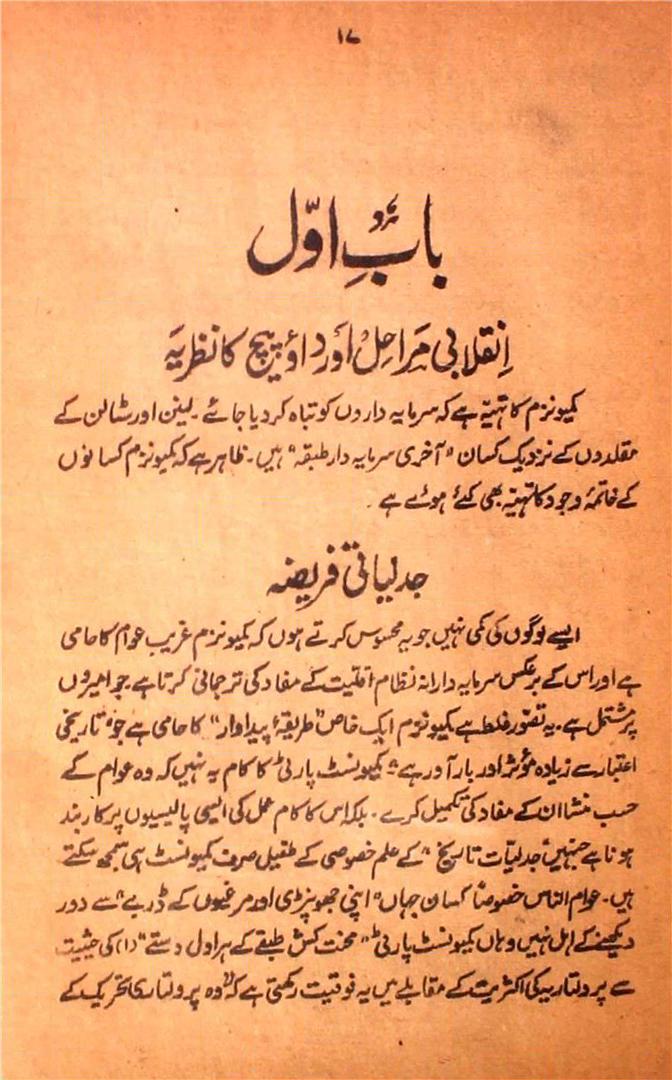 ۱۷
بابِ اوّل
اِنقلابی مَراحِلْ اَور داؤ پیچ کا نظریَہ
کمیونزم کا تہیّہ ہے کہ سرمایہ داروں کو تباہ کر دیا جائے۔ لینن اور سٹالن کے
مقلدوں کے نزدیک کسان "آخری سرمایہ دار طبقہ" ہیں۔ ظاہر ہے کہ کمیونزم کسانوں
کے خاتمۂ وجود کا تہیّہ بھی کئے ہوئے ہے۔
جدلیاتی فریضہ
ایسے لوگوں کی کمی نہیں جو یہ محسوس کرتے ہوں کہ کمیونزم غریب عوام کا حامی
ہے اور اس کے برعکس سرمایہ دارانہ نظام اقلیت کے مفاد کی ترجمانی کرتا ہے۔ جو امیروں
پر مشتمل ہے۔ یہ تصوّر غلط ہے کمیونزم ایک خاص "طریقۂ پیداوار" کا حامی ہے جو "تاریخی
اعتبار سے زیادہ مؤثر اور بار آور ہے" کمیونسٹ پارٹی کا کام یہ نہیں کہ وہ عوام کے
حسب منشا ان کے مفاد کی تکمیل کرے۔ بلکہ اس کا کام عمل کی ایسی پالیسیوں پر کاربند
ہونا ہے جنہیں "جدلیّات تاریخ" کے علم خصوصی کے طفیل صرف کمیونسٹ ہی سمجھ سکتے
ہیں۔ عوام الناس خصوصاً کسان جہاں "اپنی جھونپڑی اور مرغیوں کے ڈربے" سے دور
دیکھنے کے اہل نہیں وہاں کمیونسٹ پارٹی "محنت کش طبقے کے ہراول دستے" (۱) کی حیثیت
سے پرولتاریہ کی اکثریت کے مقابلے میں یہ فوقیت رکھتی ہے کہ "وہ پرولتاری تحریک کے